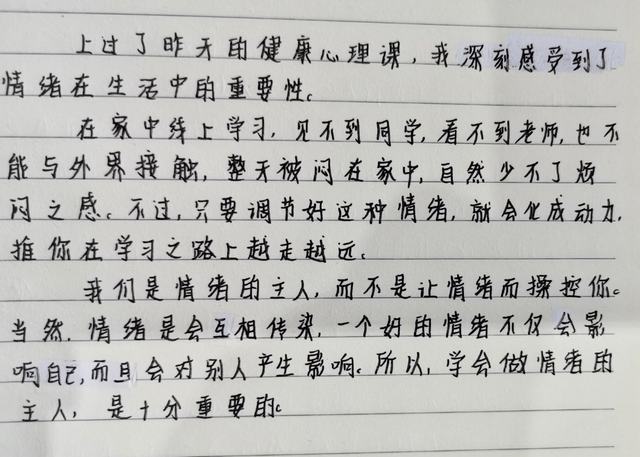 上过了昨天的健康心理课,我深刻感受到了
情绪在生活中的重要性。
在家中线上学习,见不到同学,看不到老师,也不
能与外界接触,整天被闷在家中,自然少不了烦
闷之感。不过,只要调节好这种情绪,就会化成动力,
推你在学习之路上越走越远。
我们是情绪的主人,而不是让情绪而操控你。
当然,情绪是会互相传染,一个好的情绪不仅会影
响自己,而且会对别人产生影响。所以,学会做情绪的
主人,是十分重要的。